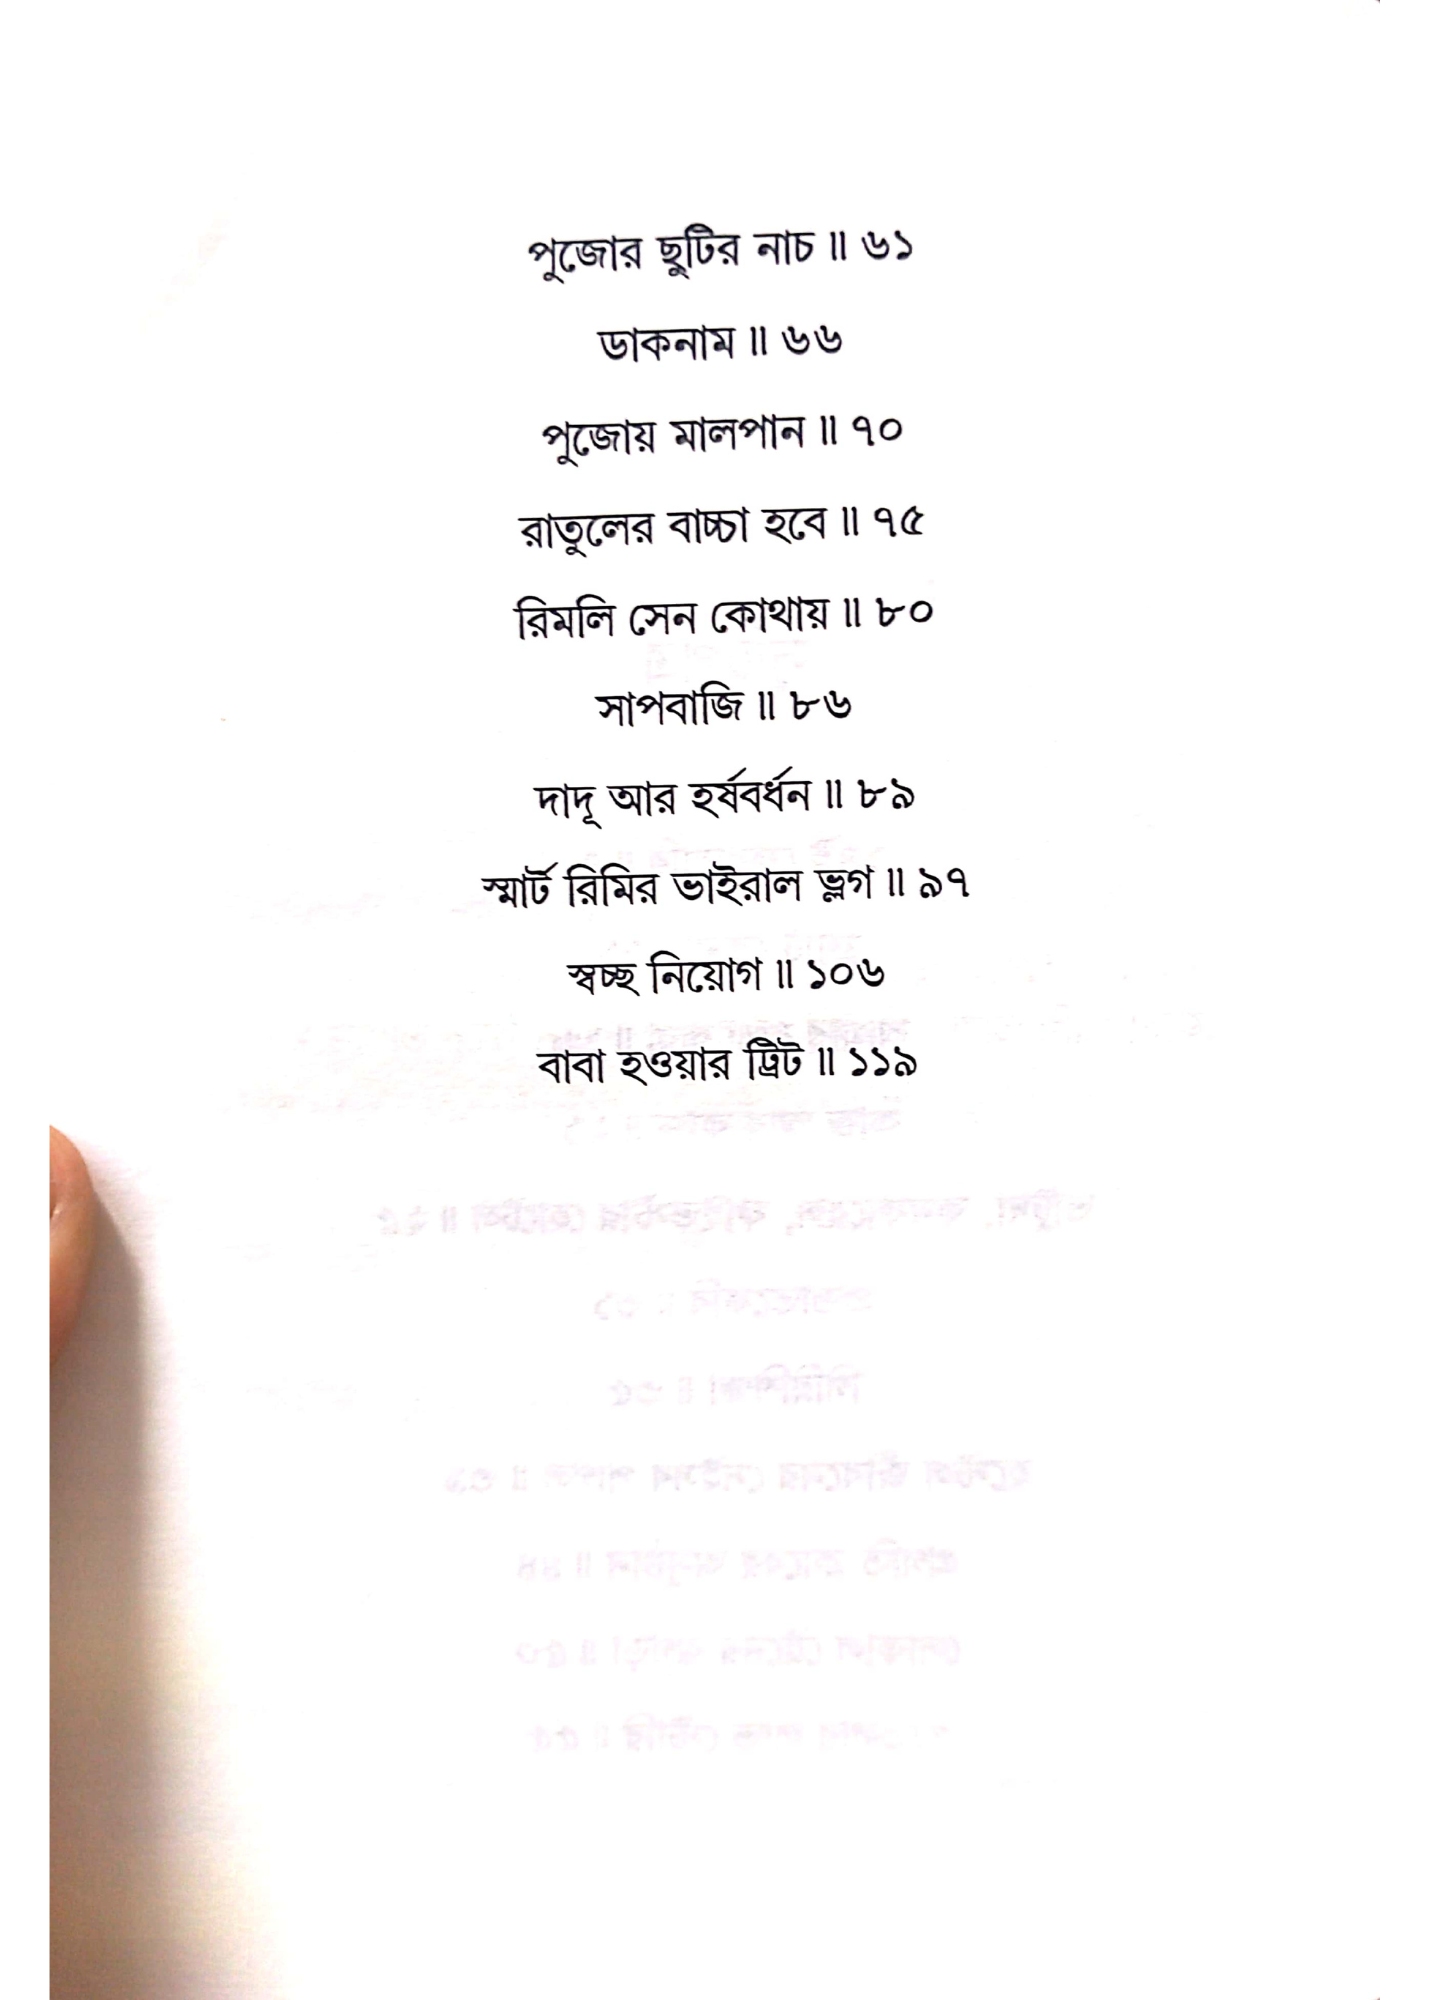 পুজোর ছুটির নাচ ॥ ৬১
ডাকনাম ॥ ৬৬
পুজোয় মালপান ॥ ৭০
রাতুলের বাচ্চা হবে ॥ ৭৫
রিমলি সেন কোথায় ॥ ৮০
সাপবাজি ॥ ৮৬
দাদূ আর হর্ষবর্ধন ॥ ৮৯
স্মার্ট রিমির ভাইরাল ভ্লগ ॥ ৯৭
স্বচ্ছ নিয়োগ ॥ ১০৬
বাবা হওয়ার ট্রিট ॥ ১১৯